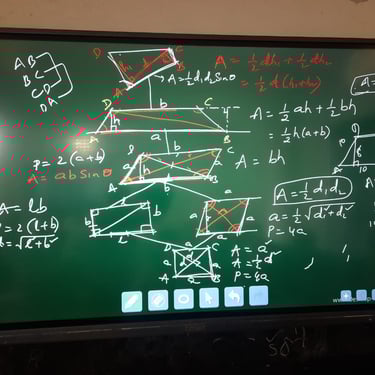 AB
BC
CD
DA
D
C
A
B
h₁
d
h₂
A = ½ d₁d₂ Sinθ
A = ½ dh₁ + ½ dh₂
= ½ d(h₁+h₂)
b
D
C
h
A
a
B
A = ½ ah + ½ bh
= ½ h(a+b)
P = 2(a+b)
A = ab Sinθ
D
b
C
h
A
b
B
A = bh
A = lb
P = 2(l+b)
d = √l²+b²
b
l
b
a
a
a
a
A = ½ d₁d₂
a = ½ √d₁²+d₂²
P = 4a
D
a
C
a
d
a
A
a
B
A = a²
A = ½ d²
P = 4a
A =
10